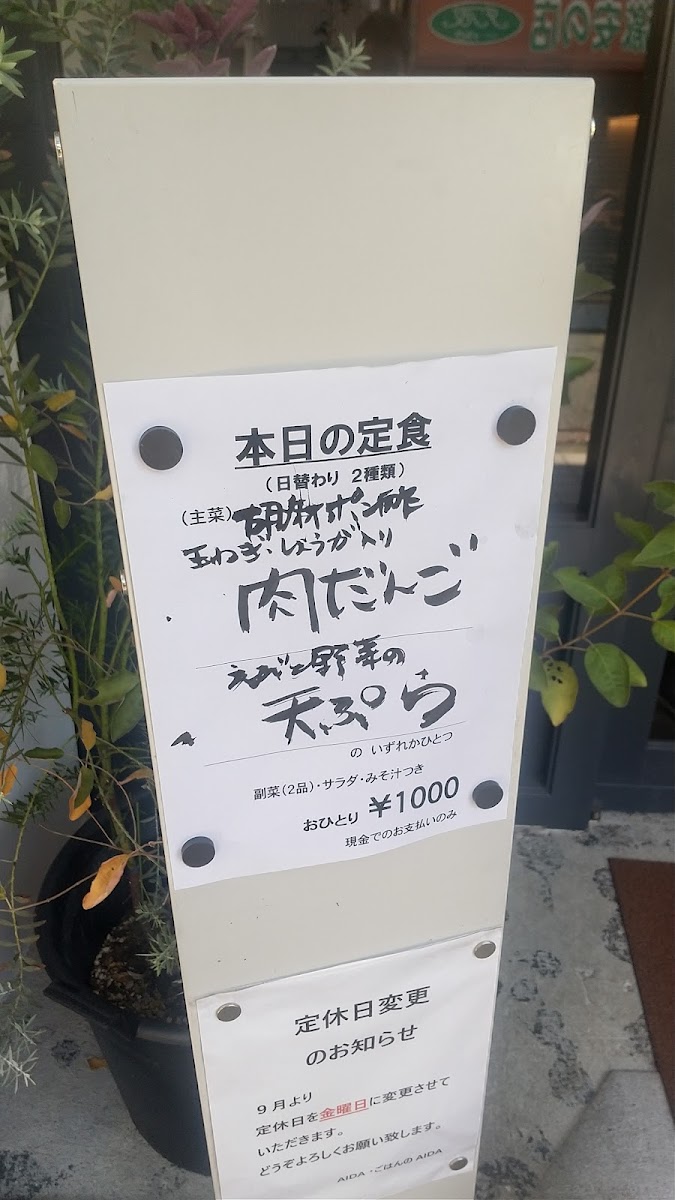 の店
本日の定食
(日替わり 2種類)
(主菜) 胡麻ポン酢
玉ねぎ・しょうが入り
肉だんご
えびと野菜の
天ぷら
の いずれかひとつ
副菜(2品)・サラダ・みそ汁つき
おひとり ¥1000
現金でのお支払いのみ
定休日変更
のお知らせ
9月より
定休日を金曜日に変更させて
いただきます。
どうぞよろしくお願い致します。
AIDA・ごはんの AIDA